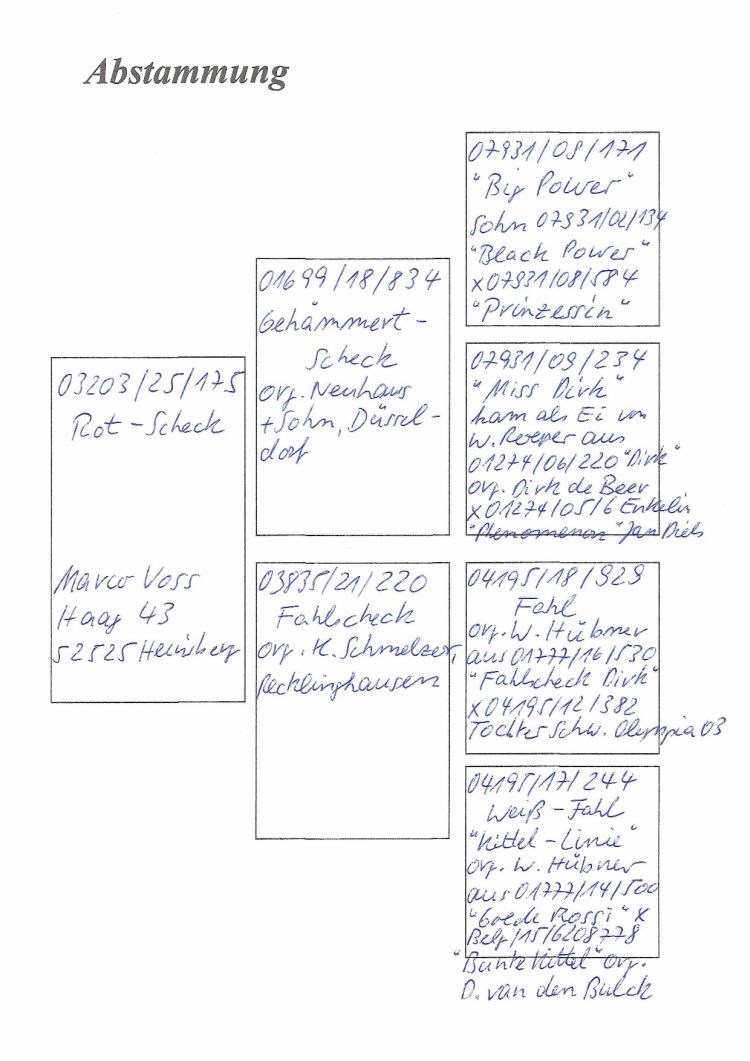 Abstammung
03203/25/175
Rot-Scheck
Marco Voss
Haag 43
52525 Heinsberg
01699/18/834
Gehämmert-
Scheck
org. Neuhaus
+Sohn, Düssel-
dorf
03835/21/220
Fahlscheck
org. K. Schmelzer,
Recklinghausen
07931/09/171
"Big Power"
Sohn 07931/02/134
"Black Power"
x07931/08/584
"Prinzessin"
07931/09/234
"Miss Dirk"
kam als Ei von
W. Roeper aus
01274/06/220 "Dirk"
org. Dirk de Beer
x01274/05/6 Enkelin
"Phenomenon" Jan Diels
04195/18/929
Fahl
org. W. Hübner
aus 01777/16/530
"Fahlscheck Dirk"
x04195/12/382
Tochter Schw. Olympia 03
04195/17/244
Weiß-Fahl
"Kittel-Linie"
org. W. Hübner
aus 01777/14/500
"Goede Rossi" x
Belg/15/6208778
"Bunte Kittel" org.
D. van den Bulck